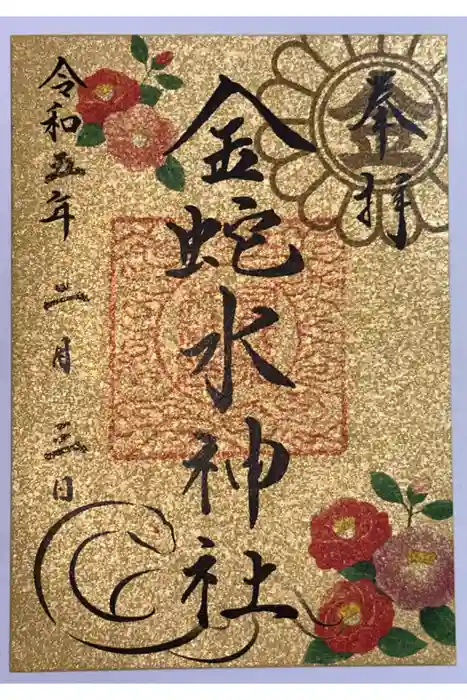 奉拝
金蛇水神社
令和五年 二月 三日